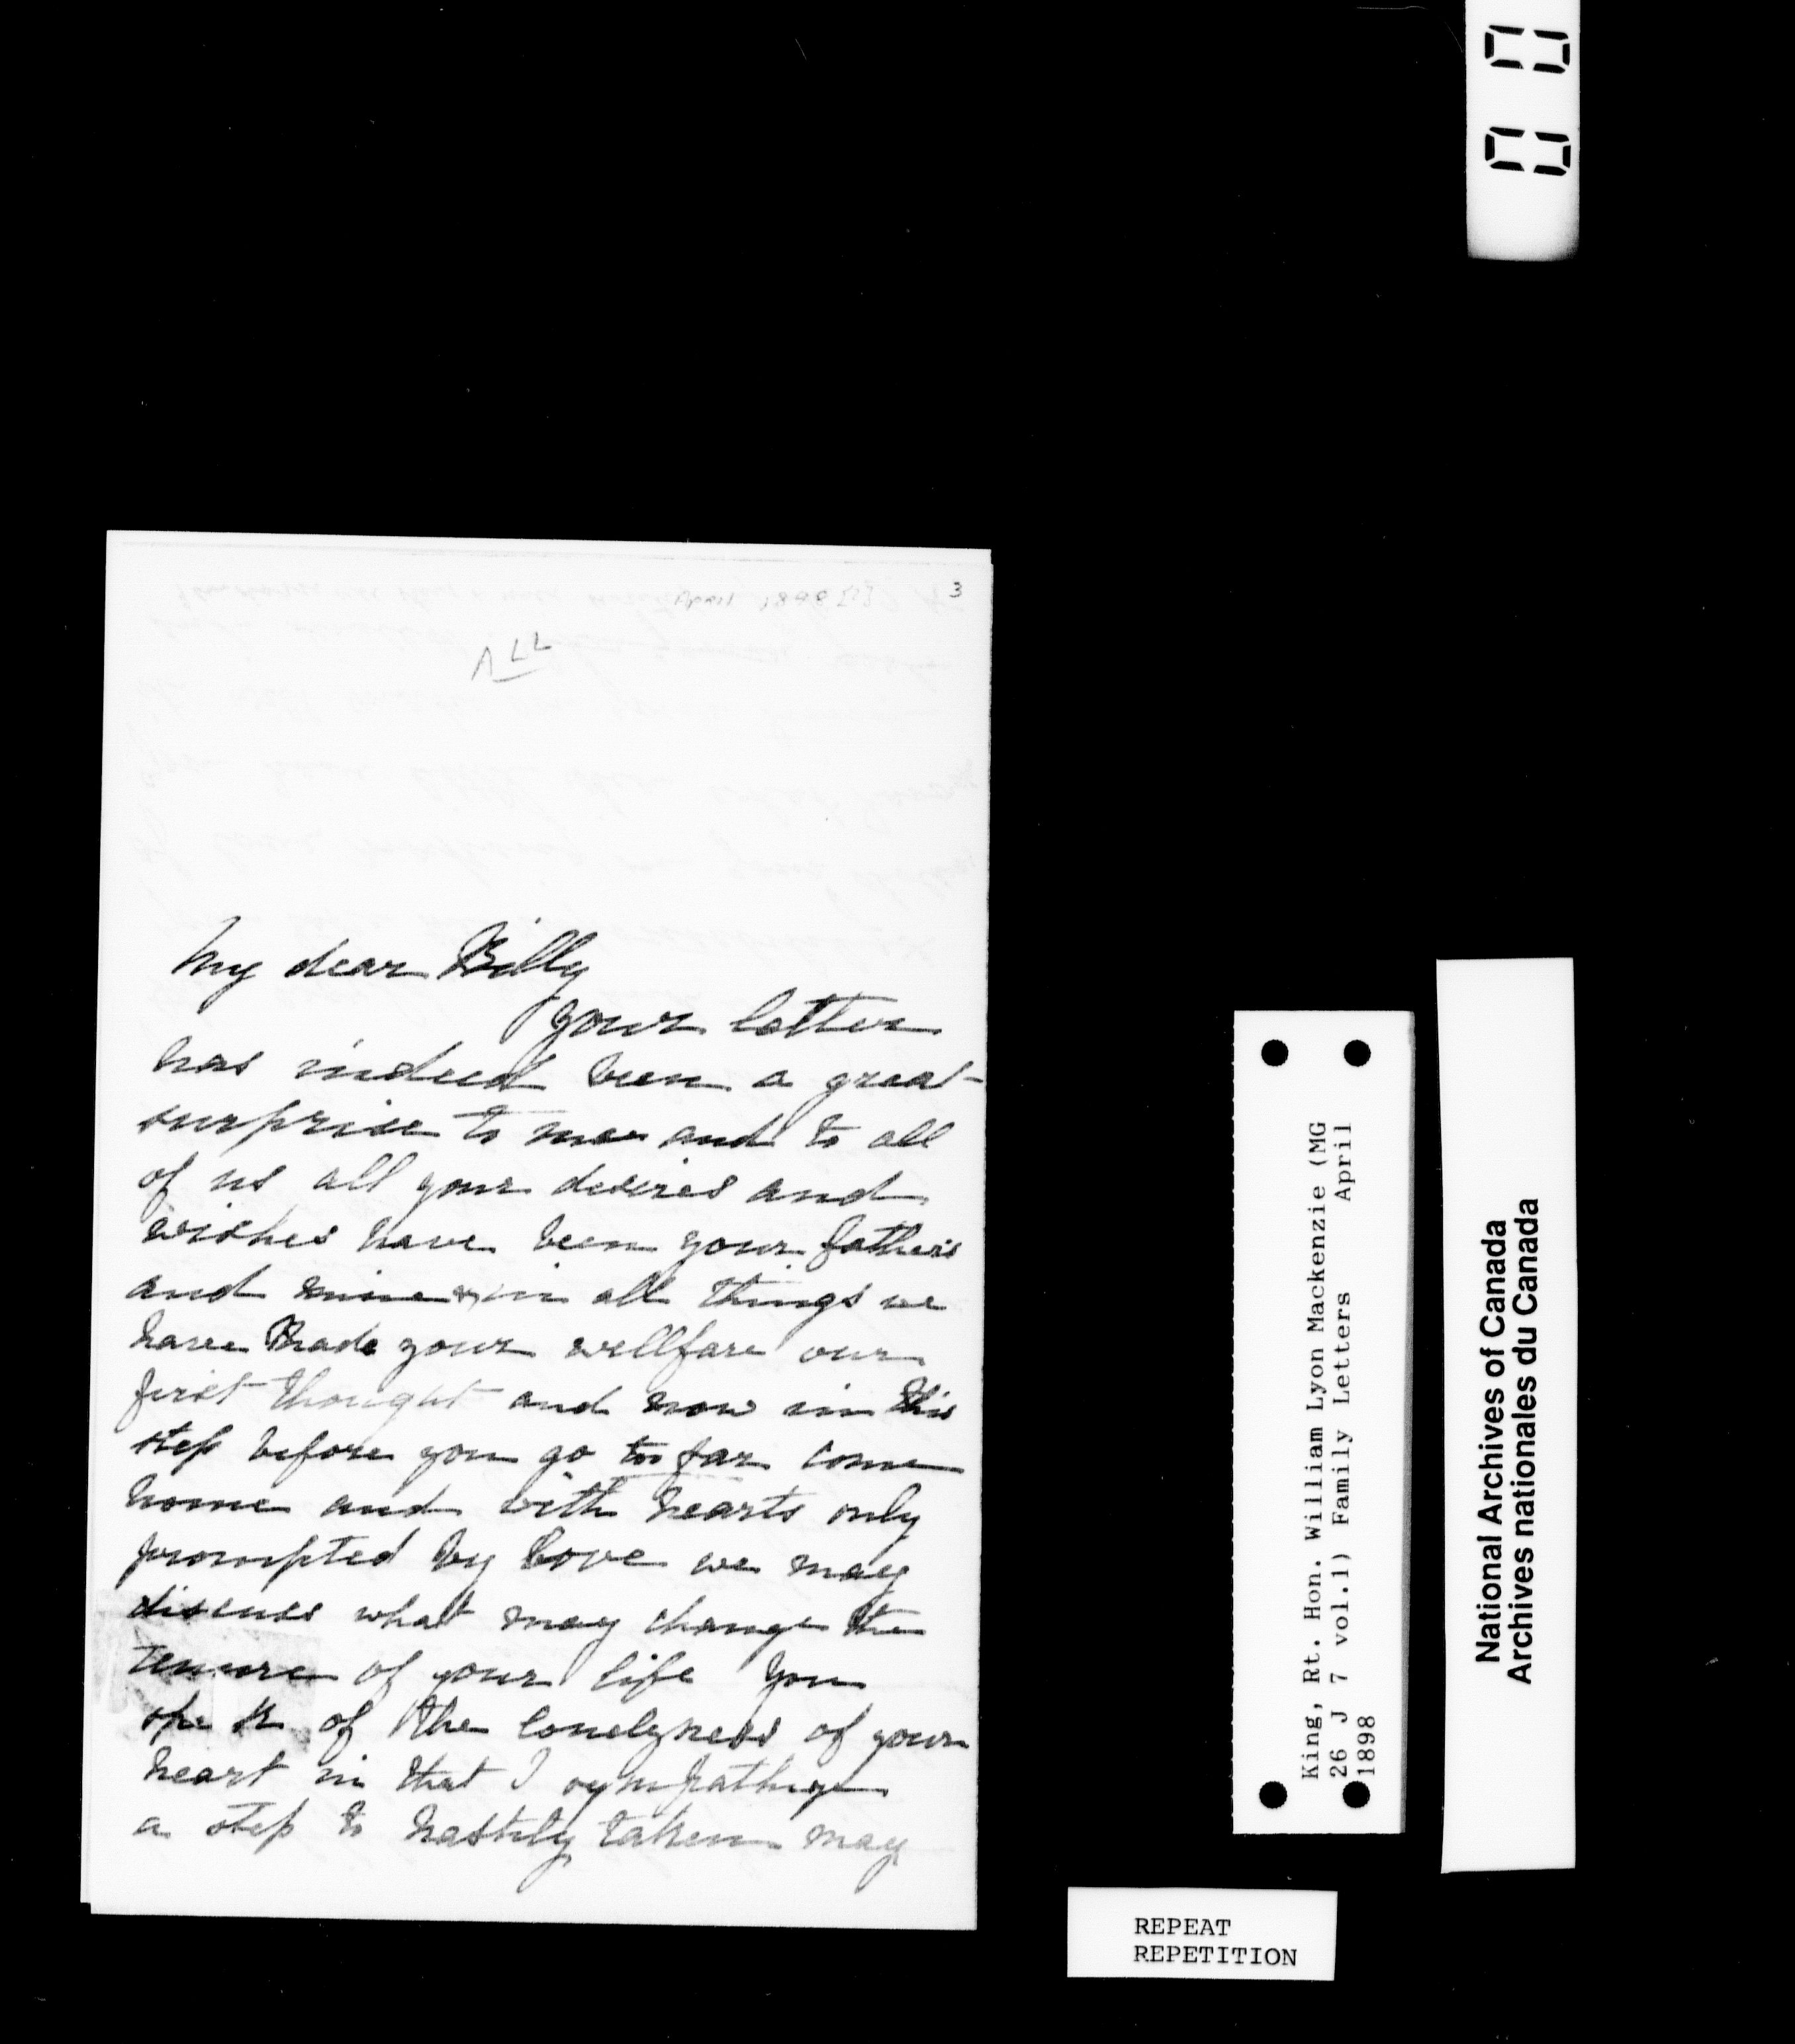 3
April 1898 [?]
ALL
My dear Billy
your letter
has indeed been a great
surprise to me and to all
of us all your desires and
wishes have been your father's
and mine in all things we
have made your wellfare our
first thought and now in this
step before you go too far come
home and with hearts only
prompted by love we may
discuss what may change the
tenure of your life You
speak of the lonelyness of your
heart in that I sympathize
a step to hastily taken may
King, Rt. Hon. William Lyon Mackenzie (MG
26 J 7 vol.1) Family Letters April
1898
National Archives of Canada
Archives nationales du Canada
REPEAT
REPETITION